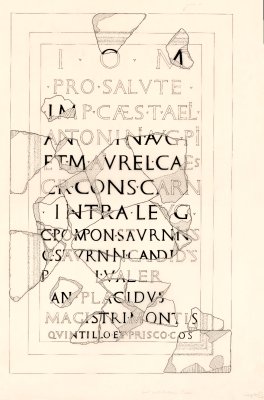 I O M
PRO·SALVTE
IMP·CÆS·T·AEL
ANTONINAVG·PI
ET·M·AVREL·CAES
CR·CONS·CARN
·INTRA·LEVG·
C·POMPON·SATVRNIN
C·SATVRNIN·CANDIDVS
VALER
AN PLACIDVS
MAGISTRI·MONTIS
QVINTILLO·ET·PRISCO·COS